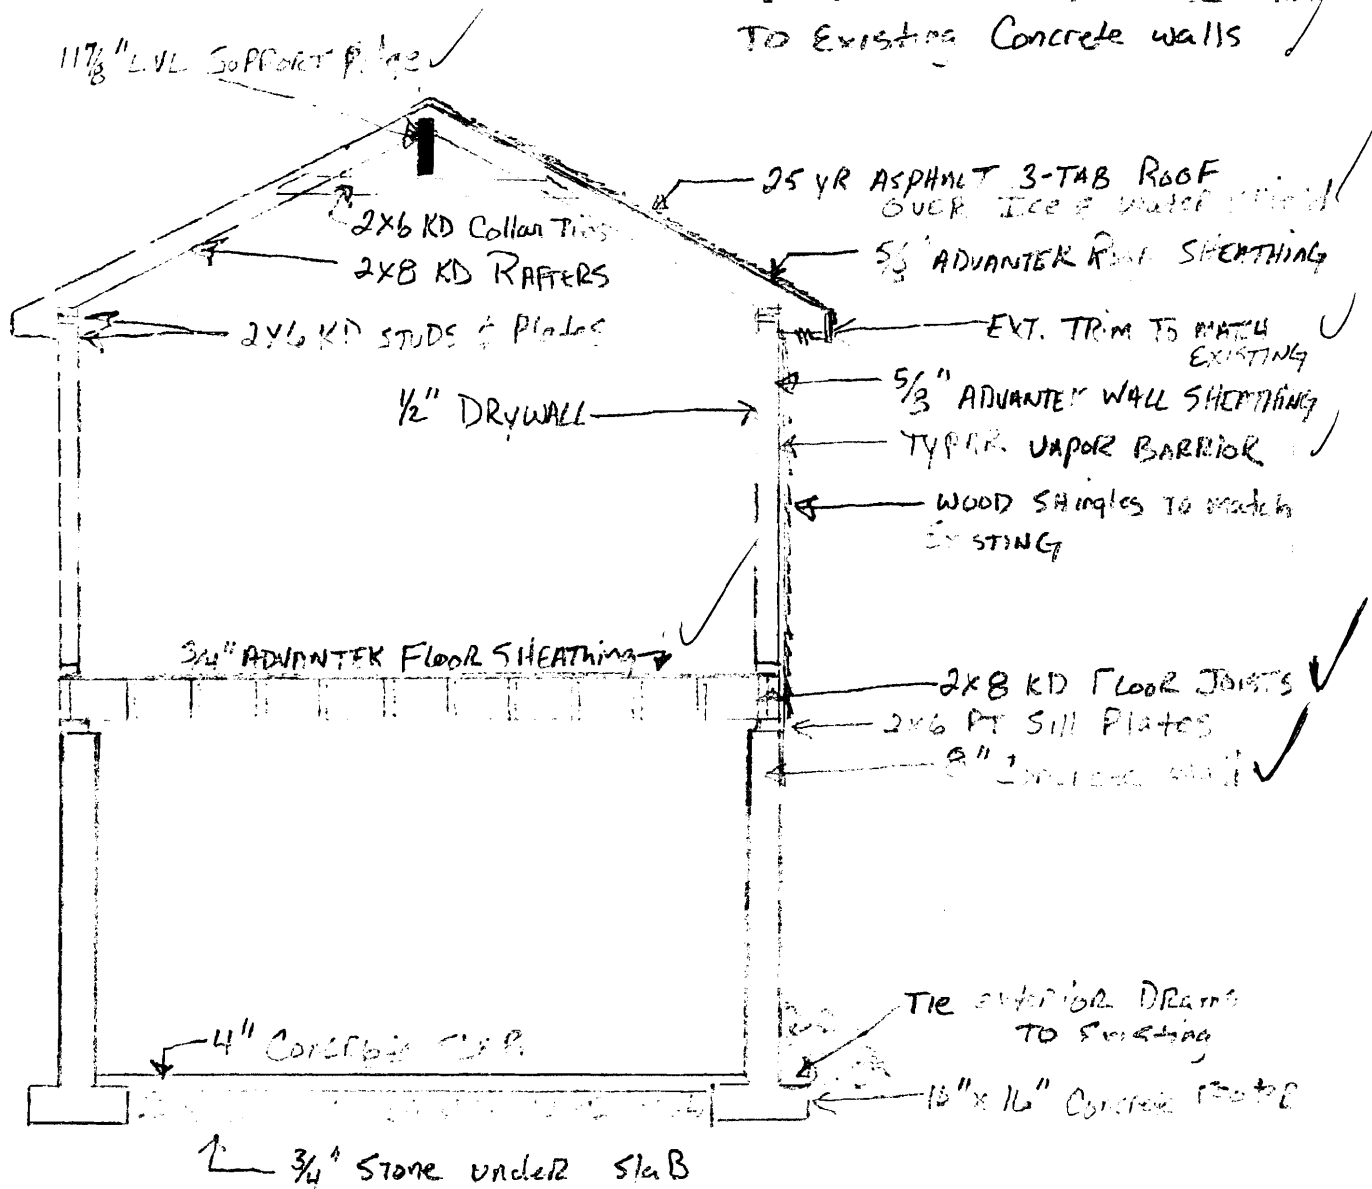 TO Existing Concrete walls
11 7/8" LVL SUPPORT Ridge
25 YR ASPHALT 3-TAB ROOF
OVER Ice & Water Shield
2X6 KD Collar Ties
5/8" ADVANTEK ROOF SHEATHING
2X8 KD RAFTERS
2X6 KD STUDS & Plates
EXT. TRIM TO MATCH
EXISTING
5/8" ADVANTEK WALL SHEATHING
1/2" DRYWALL
TYPAR VAPOR BARRIOR
WOOD SHingles TO match
EXISTING
3/4" ADVANTEK FLOOR SHEATHing
2X8 KD FLOOR JOISTS
2x6 PT Sill Plates
8" Concrete wall
Tie exterior DRains
TO Existing
4" Concrete SLAB
16" Concrete
3/4" Stone undeR SlaB